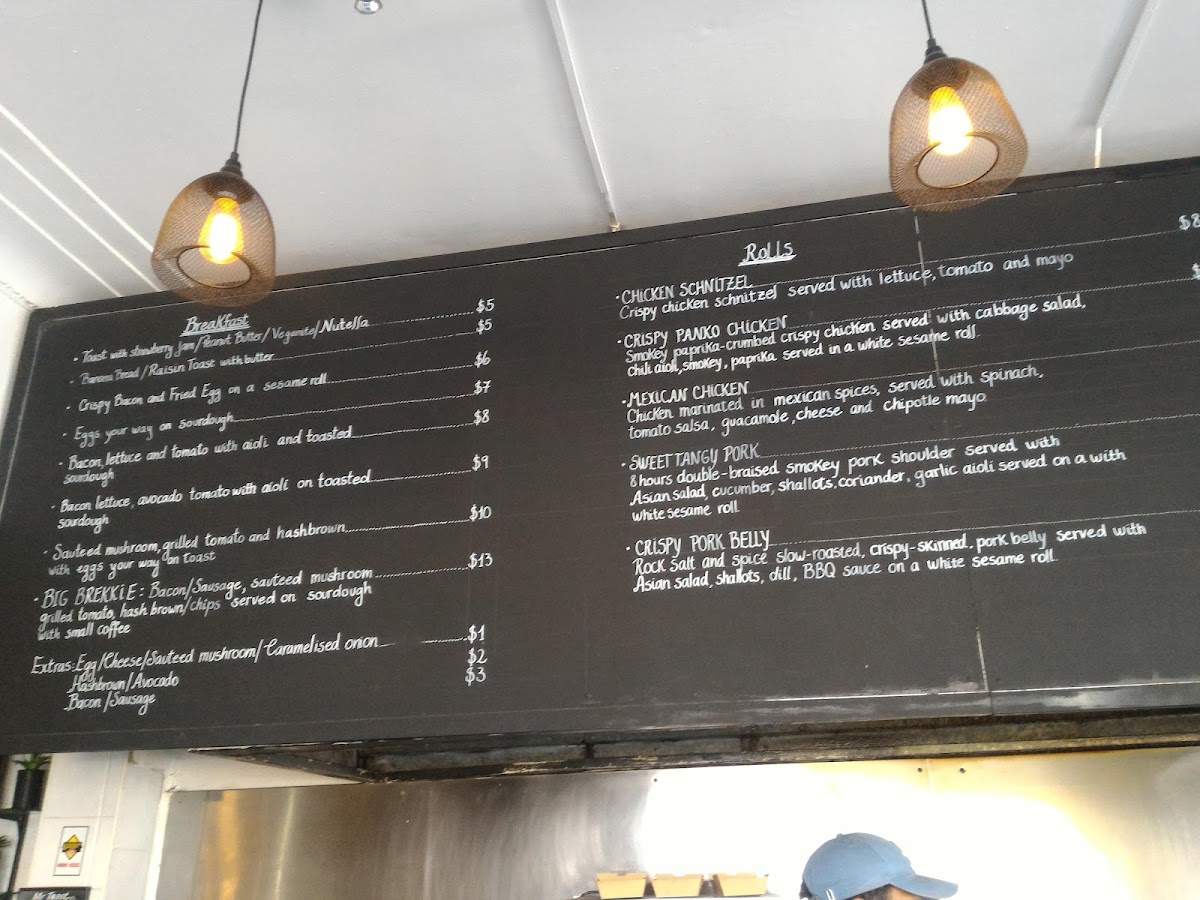 Breakfast
• Toast with strawberry Jam/Peanut Butter/Vegemite/Nutella $5
• Banana Bread/Raisin Toast with butter $5
• Crispy Bacon and Fried Egg on a sesame roll $6
• Eggs your way on sourdough $7
• Bacon, lettuce and tomato with aioli and toasted $8
sourdough
• Bacon lettuce, avocado tomato with aioli on toasted $9
sourdough
• Sauteed mushroom, grilled tomato and hashbrown $10
with eggs your way on toast
• BIG BREKKIE: Bacon/Sausage, sauteed mushroom $13
grilled tomato, hash brown/chips served on sourdough
with small coffee
Extras: Egg/Cheese/Sauteed mushroom/Caramelised onion $1
Hashbrown/Avocado $2
Bacon/Sausage $3
Rolls
• CHICKEN SCHNITZEL $8
Crispy chicken schnitzel served with lettuce, tomato and mayo
• CRISPY PANKO CHICKEN $
Smokey paprika-crumbed crispy chicken served with cabbage salad,
chili aioli, smokey, paprika served in a white sesame roll.
• MEXICAN CHICKEN
Chicken marinated in mexican spices, served with spinach,
tomato salsa, guacamole, cheese and chipotle mayo.
• SWEET TANGY PORK
8 hours double-braised smokey pork shoulder served with
Asian salad, cucumber, shallots, coriander, garlic aioli served on a with
white sesame roll.
• CRISPY PORK BELLY
Rock salt and spice slow-roasted, crispy-skinned, pork belly served with
Asian salad, shallots, dill, BBQ sauce on a white sesame roll.